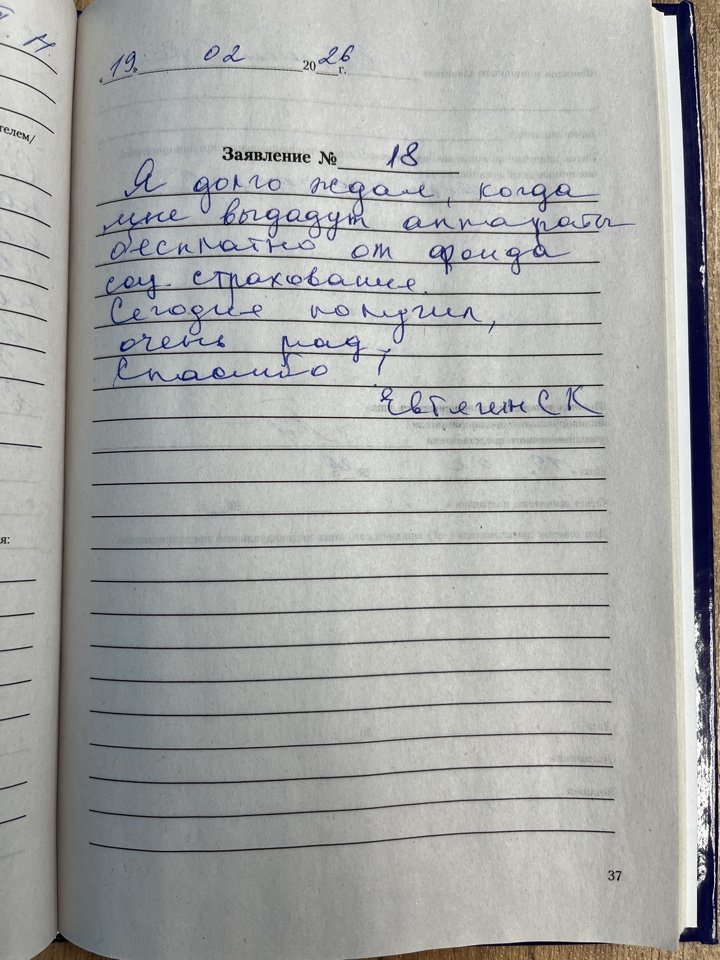 Т. Н.
телем/
я:
«19» 02 2026 г.
Заявление № 18
Я долго ждал, когда
мне выдадут аппараты
бесплатно от фонда
соц. страхования.
Сегодня получил,
очень рад,
Спасибо !
Евтягин С К
37